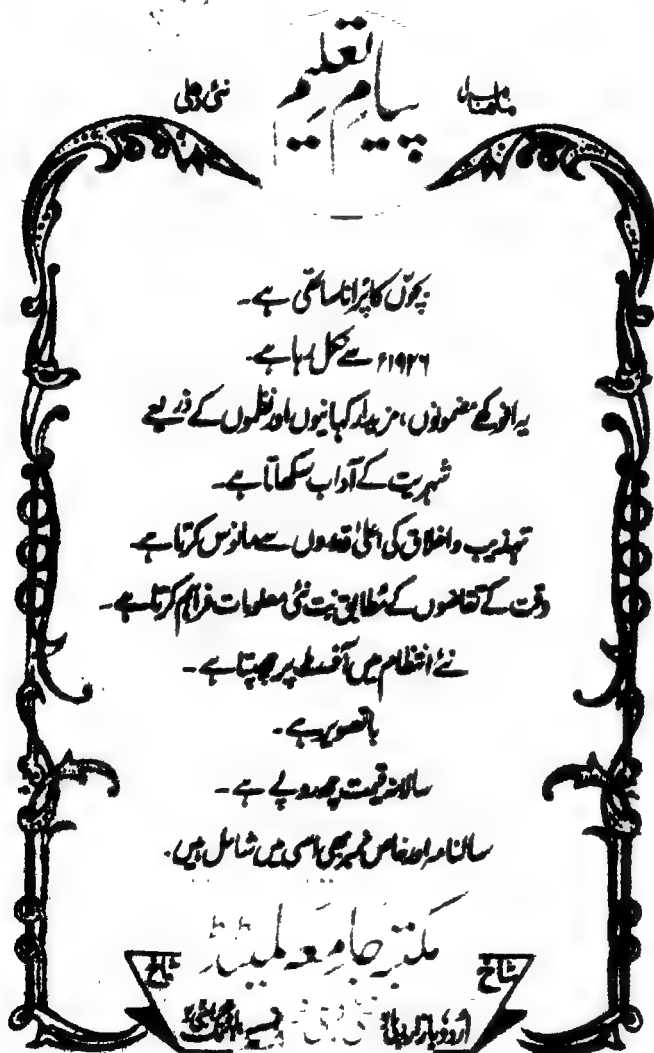 ماہنامہ پیامِ تعلیم نئی دہلی
بچوں کا پُرانا ساتھی ہے۔
۱۹۲۶ء سے نکل رہا ہے۔
یہ انوکھے مضمونوں، مزیدار کہانیوں اور نظموں کے ذریعے
شہریت کے آداب سکھاتا ہے۔
تہذیب و اخلاق کی اعلیٰ قدروں سے مانوس کرتا ہے۔
وقت کے تقاضوں کے مُطابق نِت نئی معلومات فراہم کرتا ہے۔
نئے انتظام میں آفسٹ پر چھپتا ہے۔
باتصویر ہے۔
سالانہ قیمت چھ روپے ہے۔
سالنامہ اور خاص نمبر بھی اسی میں شامل ہیں۔
مکتبہ جامِعہ لمیٹڈ
شاخ شاخ
اُردو بازار دہلی نئی دہلی